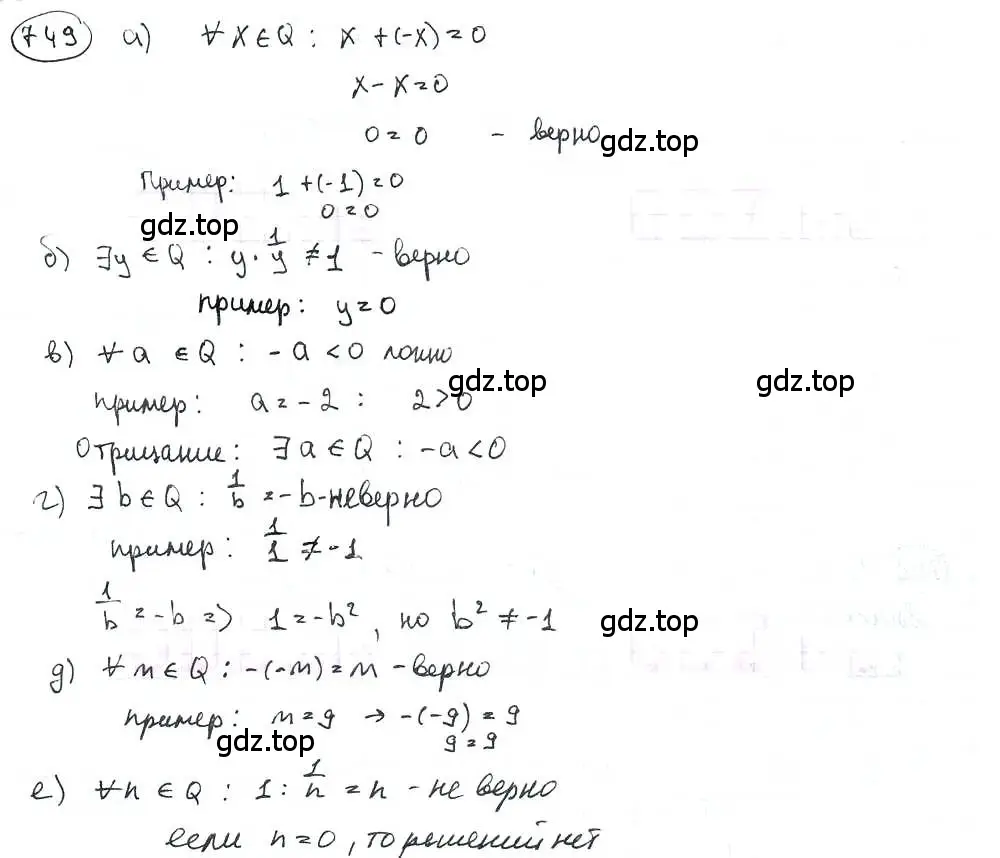 749 а) ∀x∈Q : x+(-x)=0
x-x=0
0=0 - верно
gdz.top
Пример: 1+(-1)=0
0=0
gdz.top
б) ∃y∈Q : y·1/y≠1 - верно
пример: y=0
в) ∀a∈Q : -a<0 ложно
gdz.top gdz.top
пример: a=-2 : 2>0
Отрицание: ∃a∈Q : -a<0
г) ∃b∈Q : 1/b=-b - неверно
пример: 1/1≠-1
1/b=-b => 1=-b², но b²≠-1
gdz.top
д) ∀m∈Q : -(-m)=m - верно
пример: m=9 → -(-9)=9
9=9
gdz.top
е) ∀n∈Q : 1:1/n=n - не верно
если n=0, то решений нет